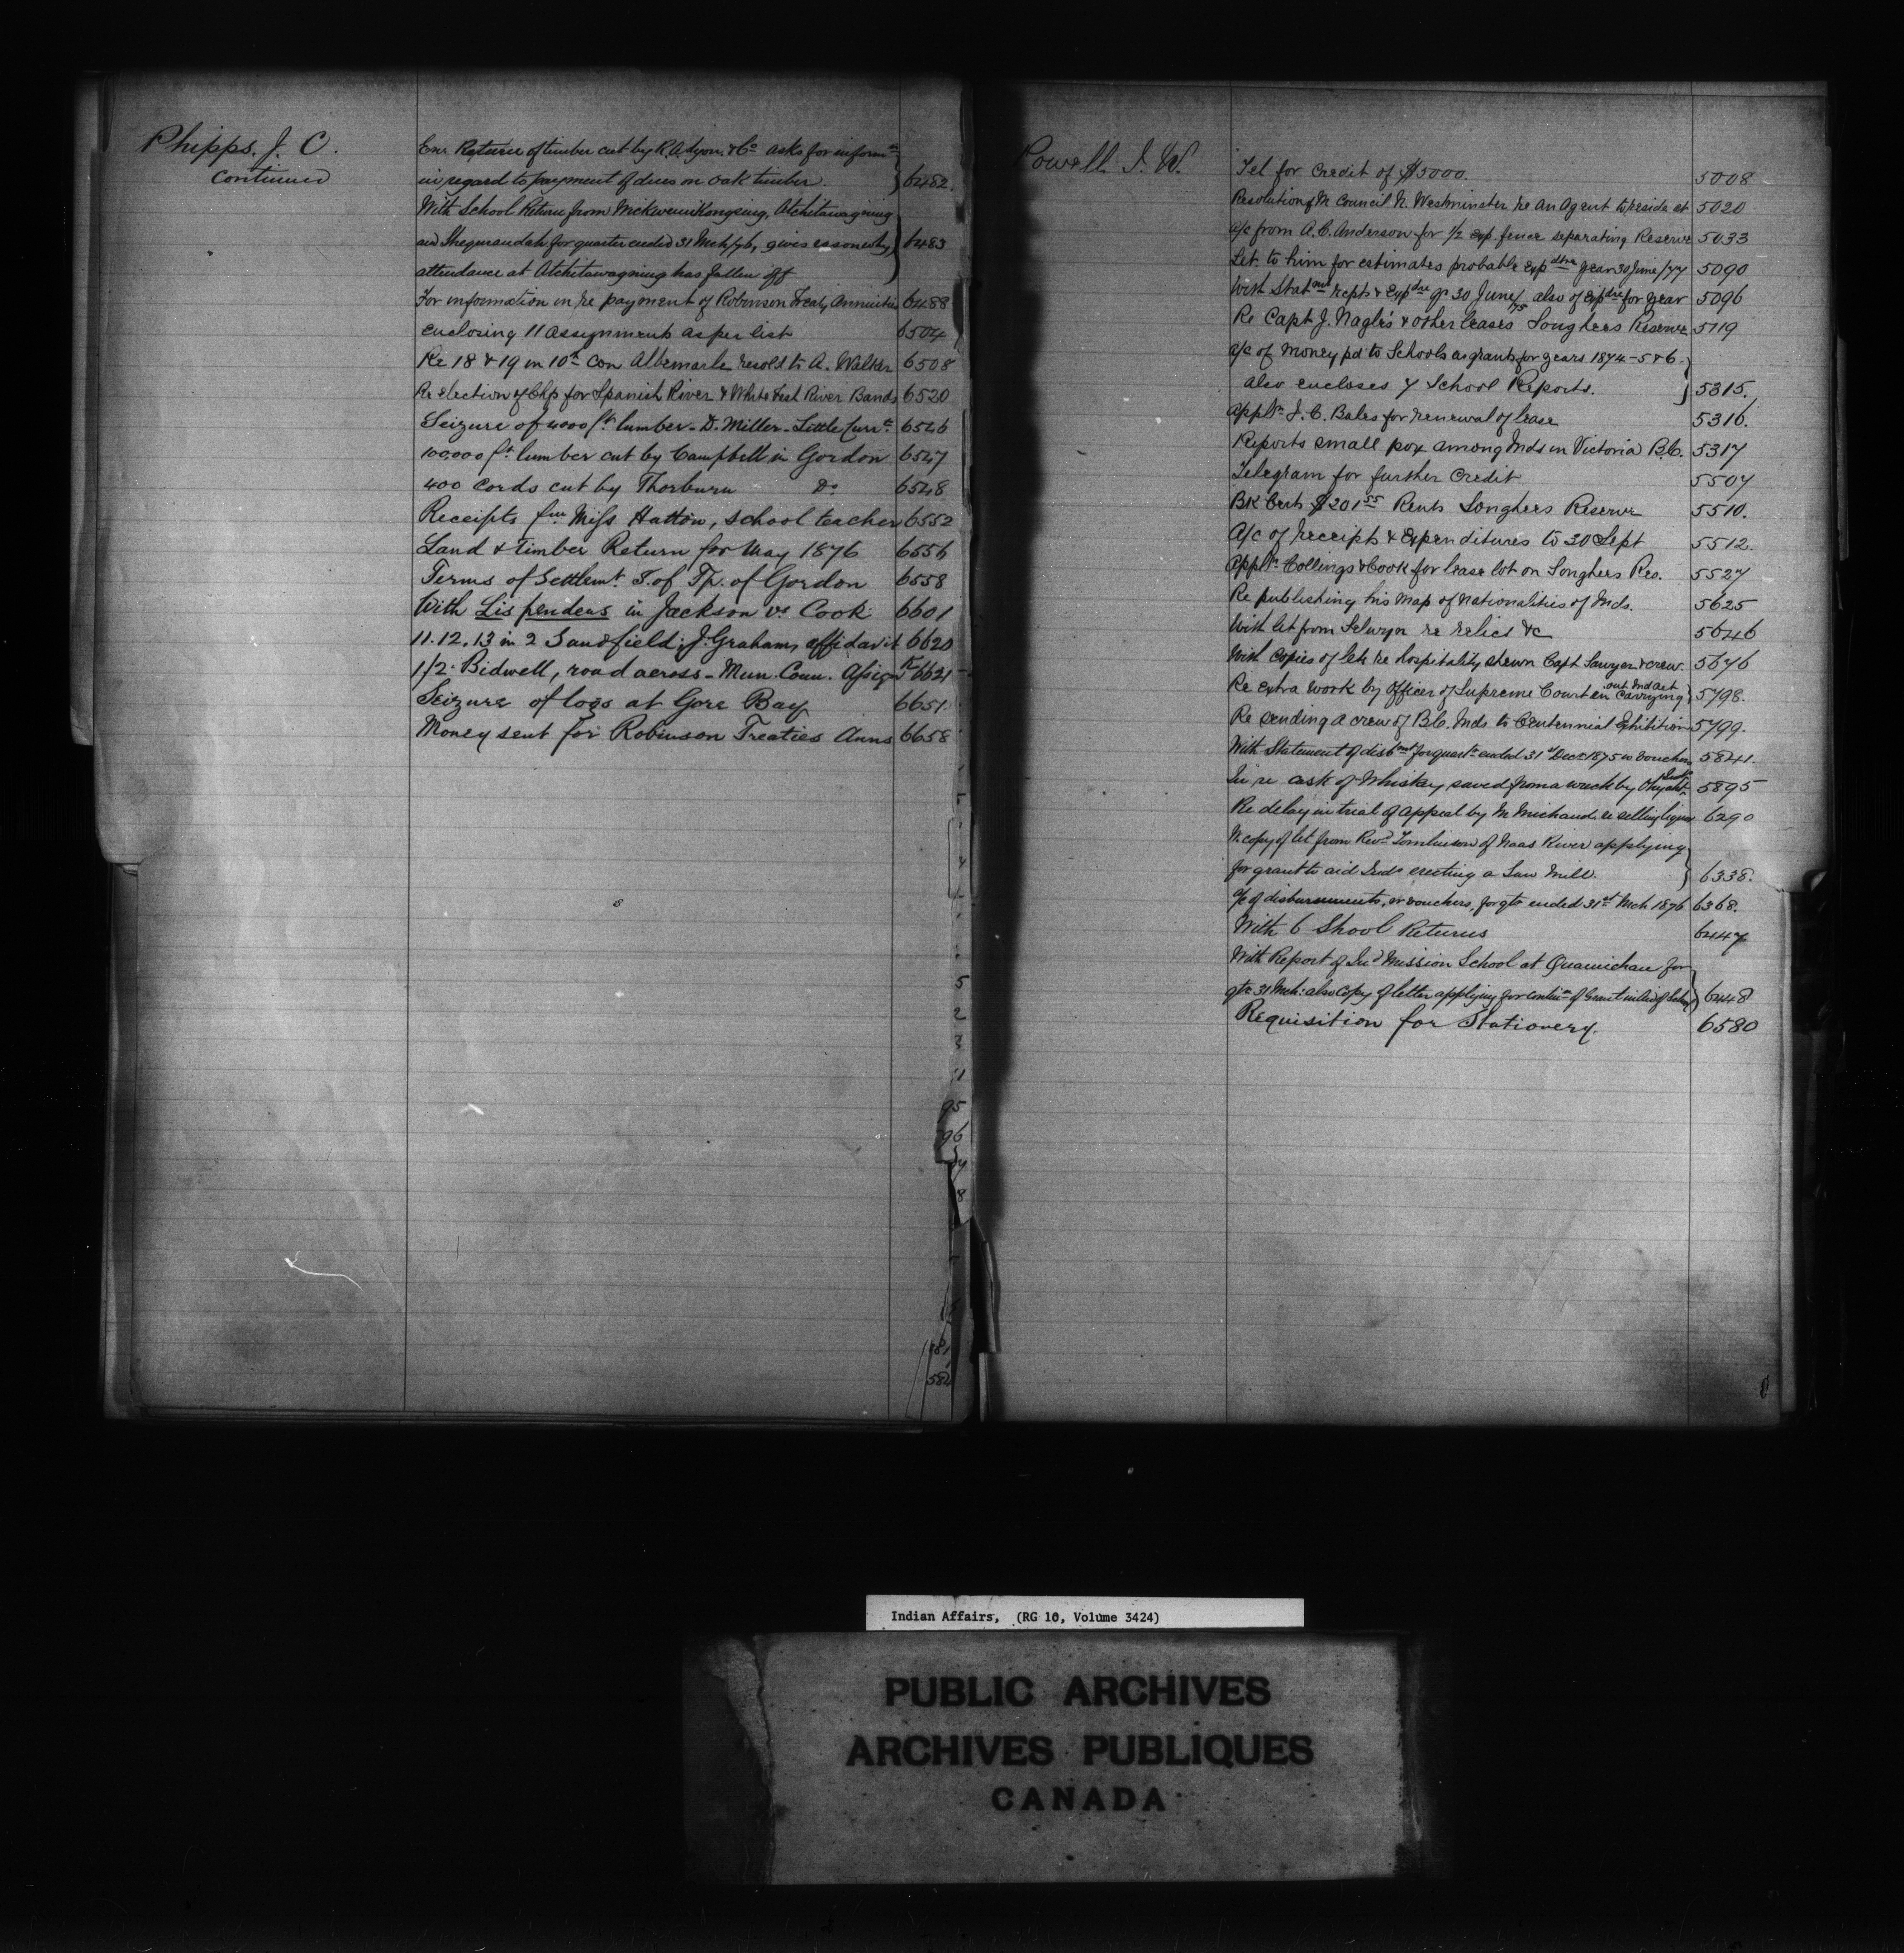 Phipps. J. C.
continued
Enc Return of timber cut by R. A. Lyon & Co asks for inform[n]
in regard to payment of dues on oak timber. 6482.
With School Return from Mickweunikongsing, Atchitawagning
and Sheguiandah for quarter ended 31 Mch/76, gives reason why 6483
attendance at Atchitawagning has fallen off
For information in re payment of Robinson Treaty Annuities 6488
enclosing 11 assignments as per list 6504
Re 18 & 19 in 10th Con Albemarle resold to A. Walker 6508
Re election of Chfs for Spanish River & White Fish River Bands 6520
Seizure of 4000 ft lumber - D. Miller - Little Curr[t] 6546
100,000 ft lumber cut by Campbell in Gordon 6547
400 Cords cut by Thorburn Do 6548
Receipts fm Miss Hatton, school teacher 6552
Land & Timber Return for May 1876 6556
Terms of Settlemt T. of Tp. of Gordon 6558
With Lis pendens in Jackson vs Cook 6601
11.12.13 in 2 Sandfield; J. Graham, affidavit 6620
1/2. Bidwell, road across - Mun. Coun. Assig 6621
Seizure of logs at Gore Bay 6651
Money sent for Robinson Treaties Anns 6658
5
4
5
2
3
11
95
96
4
8
81
584
Powell. I. W.
Tel for Credit of $5000. 5008
Resolution of M Council N. Westminster re An Agent to reside at 5020
a/c from A. C. Anderson for 1/2 exp. fence separating Reserve 5033
Let. to him for estimates probable expdtre year 30 June/77 5090
With Statmt recpts & Expdre qr 30 June/75 also of Expdre for year 5096
Re Capt J. Nagle's & other leases Songhees Reserve 5119
a/c of Money pd to Schools as grants for years 1874-5 & 6.
also encloses 7 School Reports. 5315.
appltn J. C. Bales for renewal of lease 5316.
Reports small pox among Inds in Victoria B.C. 5317
Telegram for further Credit 5507
Bk Certs $201 55 Rents Songhees Reserve 5510.
A/c of receipts & Expenditures to 30 Sept 5512.
appltn Collings & Cook for lease lot on Songhees Res. 5527
Re publishing his map of nationalities of Inds. 5625
With let from Selwyn re relics &c 5646
With Copies of lets re hospitality shewn Capt Sawyer & crew. 5676
Re extra work by Officer of Supreme Court in carrying out Ind Act 5798.
Re sending a crew of B.C. Inds to Centennial Exhibition 5799.
With Statement of disbmt for quartr ended 31st Decr 1875 w vouchers 5841.
In re cask of Whiskey saved from a wreck by Ohyaht Inds 5895
Re delay in trial of Appeal by M Michaud re selling liquor 6290
W. copy of let from Revd Tomlinson of Naas River applying
for grant to aid Inds erecting a Saw Mill. 6338.
a/c of disbursements, w vouchers, for qtr ended 31st Mch 1876 6368.
With 6 Shool Returns 6447
With Report of Ind Mission School at Quamichan for
qtr 31 Mch: also Copy of letter applying for contin[n] of Grant in lieu of Salary 6448
Requisition for Stationery. 6580
Indian Affairs, (RG 10, Volume 3424)
PUBLIC ARCHIVES
ARCHIVES PUBLIQUES
CANADA